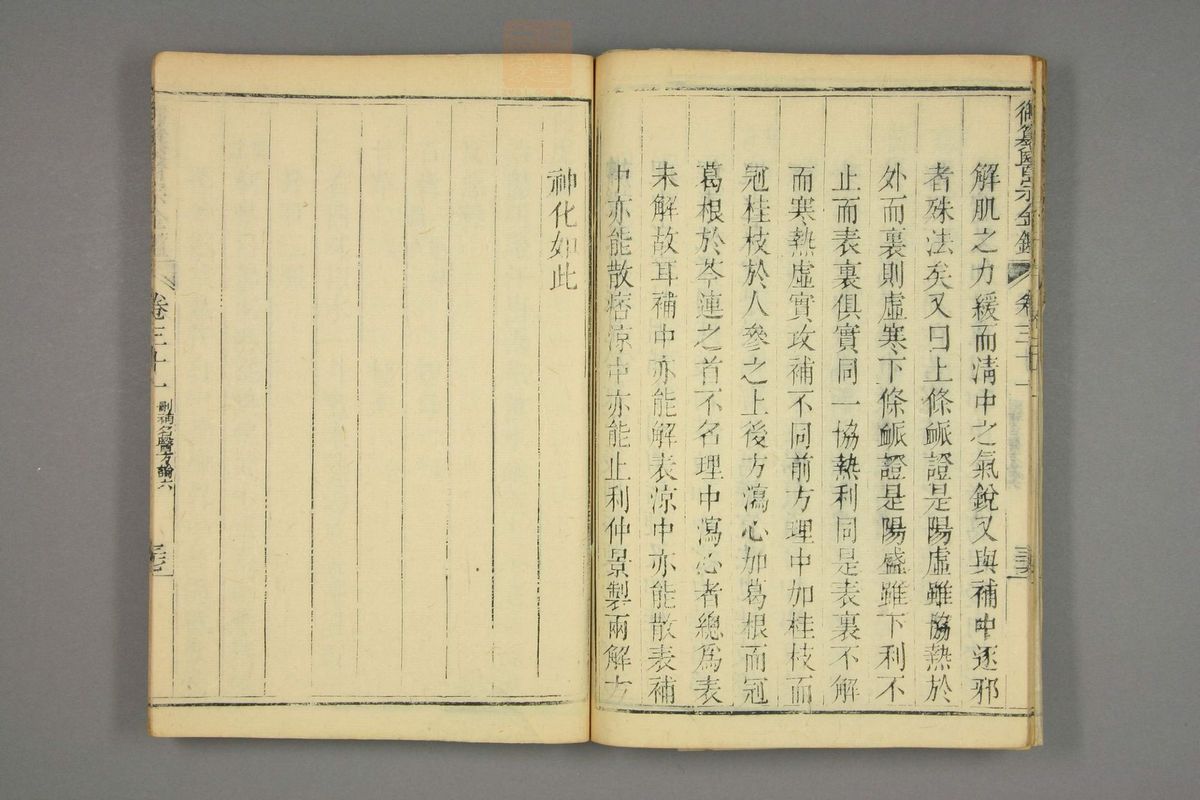 御纂醫宗金鑑 卷三十一
解肌之力緩而淸中之氣銳又與補中逐邪
者殊法矣又曰上條脈證是陽虛雖協熱於
外而裏則虛寒下條脈證是陽盛雖下利不
止而表裏俱實同一協熱利同是表裏不解
而寒熱虛實攻補不同前方理中加桂枝而
冠桂枝於人參之上後方瀉心加葛根而冠
葛根於芩連之首不名理中瀉心者總爲表
未解故耳補中亦能解表涼中亦能散表補
中亦能散痞涼中亦能止利仲景製兩解方
神化如此
卷三十一 刪補名醫方論六